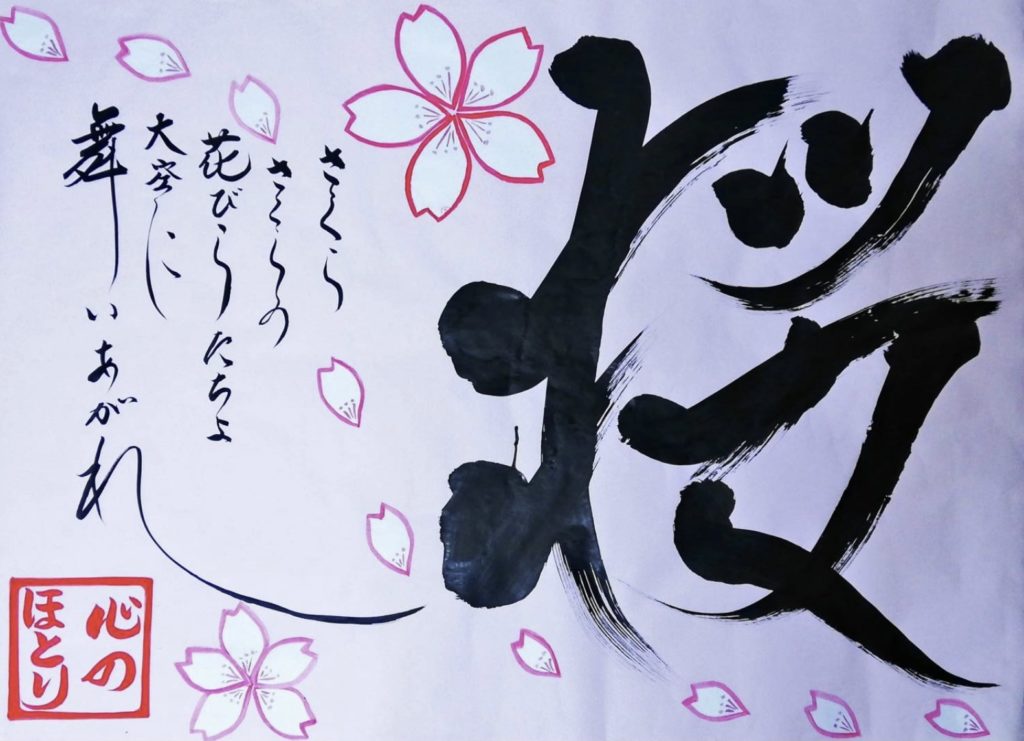 桜
さくら
さくらの
花びらたちよ
大空に
舞いあがれ
心の
ほとり